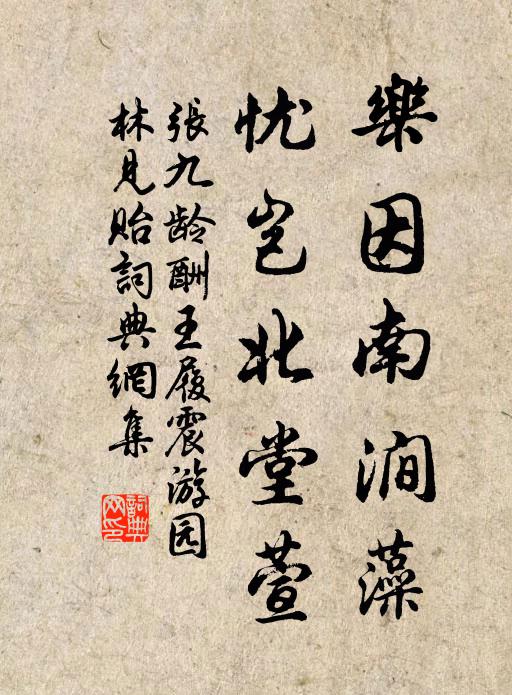 樂因南澗藻
忧岂北堂萱
張九齡酬王履震游园
林見貽詞典網集
詞典
网印